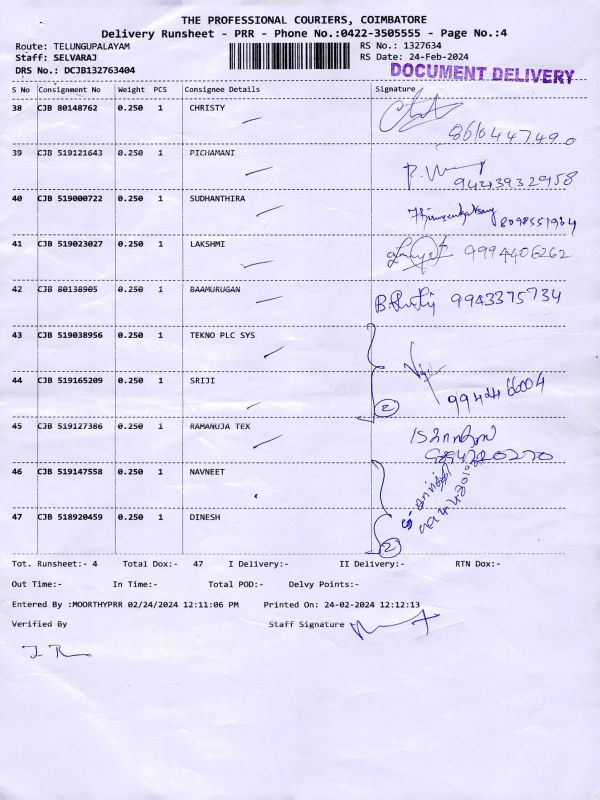 THE PROFESSIONAL COURIERS, COIMBATORE
Delivery Runsheet - PRR - Phone No.:0422-3505555 - Page No.:4
Route: TELUNGUPALAYAM RS No.: 1327634
Staff: SELVARAJ RS Date: 24-Feb-2024
DRS No.: DCJB132763404 DOCUMENT DELIVERY
S No Consignment No Weight PCS Consignee Details Signature
38 CJB 80148762 0.250 1 CHRISTY
8610447490
39 CJB 519121643 0.250 1 PICHAMANI
9442393 2958
40 CJB 519000722 0.250 1 SUDHANTHIRA
8098551934
41 CJB 519023027 0.250 1 LAKSHMI 9994406262
42 CJB 80138905 0.250 1 BAAMURUGAN 9943375734
43 CJB 519038956 0.250 1 TEKNO PLC SYS
44 CJB 519165209 0.250 1 SRIJI
2
45 CJB 519127386 0.250 1 RAMANUJA TEX
46 CJB 519147558 0.250 1 NAVNEET
47 CJB 518920459 0.250 1 DINESH
2
Tot. Runsheet:- 4 Total Dox:- 47 I Delivery:- II Delivery:- RTN Dox:-
Out Time:- In Time:- Total POD:- Delvy Points:-
Entered By :MOORTHYPRR 02/24/2024 12:11:06 PM Printed On: 24-02-2024 12:12:13
Verified By Staff Signature